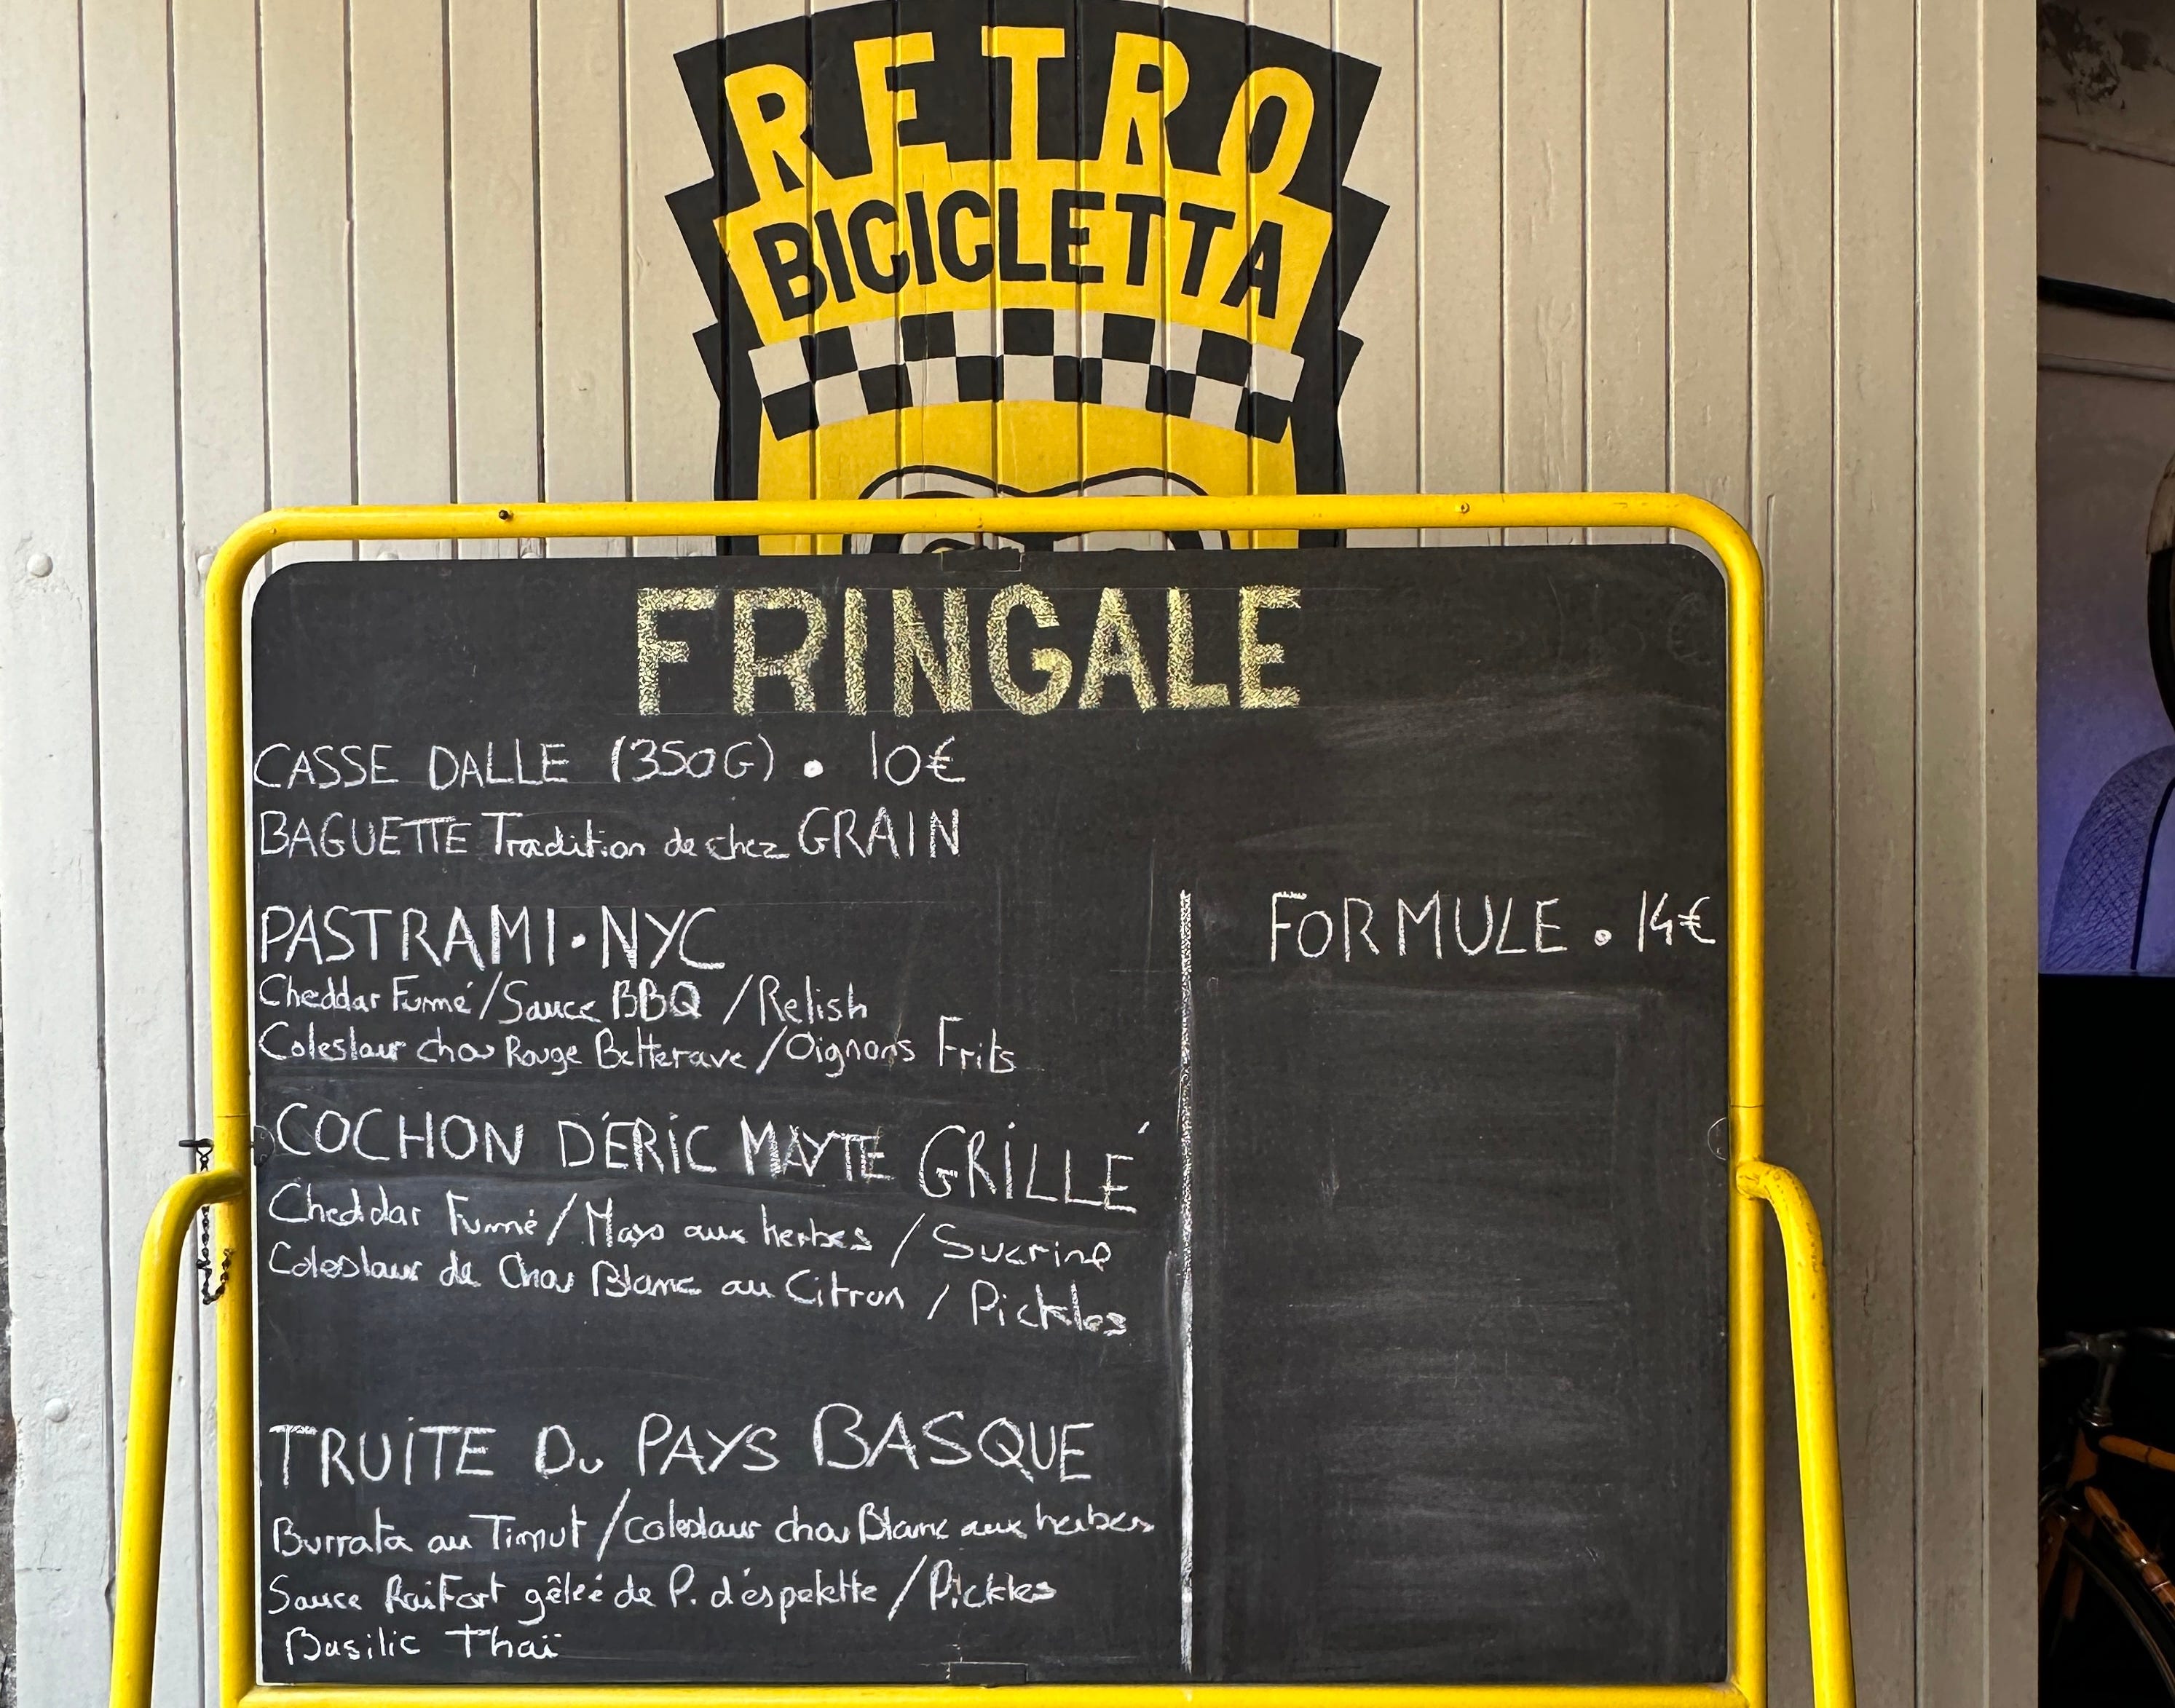 RETRO
BICICLETTA
FRINGALE
CASSE DALLE (350G) • 10€
BAGUETTE Tradition de chez GRAIN
PASTRAMI • NYC
Cheddar Fumé / Sauce BBQ / Relish
Coleslaw chou Rouge Betterave / Oignons Frits
FORMULE • 14€
COCHON D'ÉRIC MAYTE GRILLÉ
Cheddar Fumé / Mayo aux herbes / Sucrine
Coleslaw de Chou Blanc au Citron / Pickles
TRUITE Du PAYS BASQUE
Burrata au Timut / coleslaw chou Blanc aux herbes
Sauce RaiFort gêleé de P. d'éspelette / Pickles
Basilic Thaï